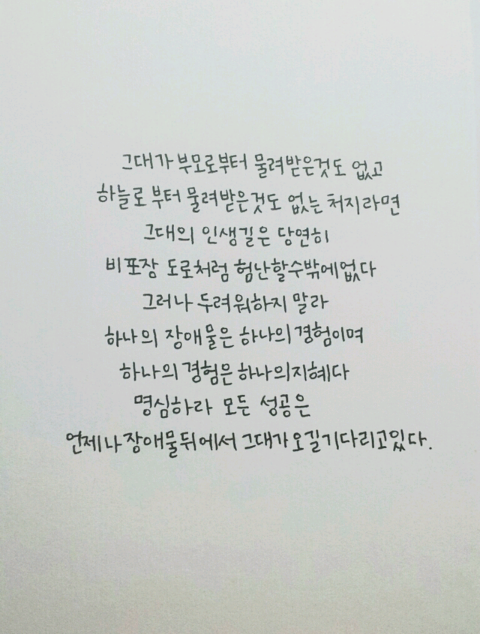 그대가 부모로부터 물려받은것도 없고
하늘로 부터 물려받은것도 없는 처지라면
그대의 인생길은 당연히
비포장 도로처럼 험난할수밖에없다
그러나 두려워하지 말라
하나의 장애물은 하나의 경험이며
하나의 경험은 하나의지혜다
명심하라 모든 성공은
언제나 장애물뒤에서 그대가오길기다리고있다.